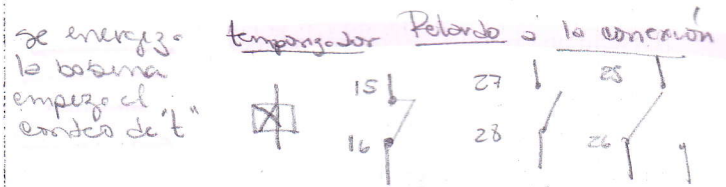 se energiza
la bobina
empieza el
conteo de "t"
temporizador Retardo a la conexión
15
16
27
28
25
26